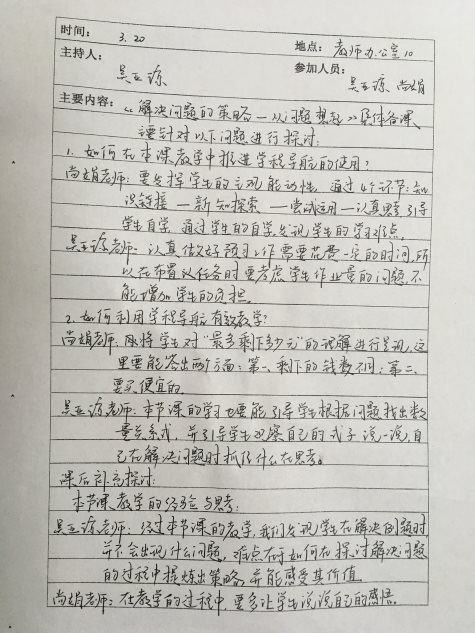 时间： 3.20 地点：教师办公室10
主持人： 参加人员：
吴云琼 吴云琼 尚娟
主要内容：《解决问题的策略—从问题想起》集体备课
主要针对以下问题进行探讨：
1. 如何在本课教学中推进学程导航的使用？
尚娟老师：要发挥学生的主观能动性，通过4个环节：知
识链接—新知探索—尝试运用—认真思考，引导
学生自学，通过学生的自学发现学生的学习难点。
老师：认真做好预习工作需要花费一定的时间，所
以在布置这任务时要考虑学生作业量的问题，不
能增加学生的负担。
2. 如何利用学程导航有效教学？
尚娟老师：应将学生对“最多剩下多少元”的理解进行呈现，这
里要能答出两个方面：第一、剩下的钱数不同；第二、
要买便宜的。
老师：本节课的学习也要能引导学生根据问题找出数
量关系式，并引导学生观察自己的式子说一说，自
己在解决问题时抓住什么在思考。
课后补充探讨：
本节课教学的经验与思考：
老师：经过本节课的教学，我们发现学生在解决例题时
并不会出现什么问题，难点在于如何在探讨解决问题
的过程中提炼出策略，并能感受其价值。
尚娟老师：在教学的过程中，要多让学生说说自己的感悟。